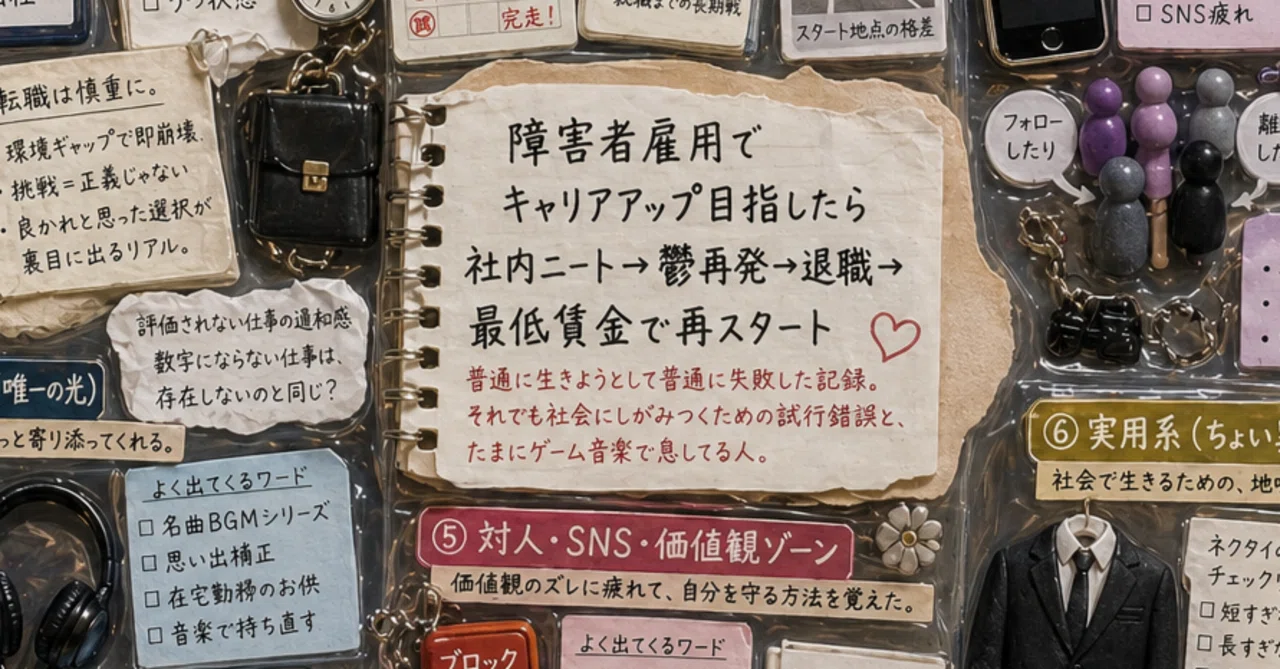 □ うつ状態
完走!
就職までの長期戦
スタート地点の格差
□ SNS疲れ
転職は慎重に。
環境ギャップで即崩壊。
・挑戦=正義じゃない
・良かれと思った選択が
裏目に出るリアル。
評価されない仕事の違和感
数字にならない仕事は、
存在しないのと同じ?
唯一の光)
っと寄り添ってくれる。
よく出てくるワード
□ 名曲BGMシリーズ
□ 思い出補正
□ 在宅勤務のお供
□ 音楽で持ち直す
障害者雇用で
キャリアアップ目指したら
社内ニート→鬱再発→退職→
最低賃金で再スタート
普通に生きようとして普通に失敗した記録。
それでも社会にしがみつくための試行錯誤と、
たまにゲーム音楽で息してる人。
⑤ 対人・SNS・価値観ゾーン
価値観のズレに疲れて、自分を守る方法を覚えた。
ブロック
よく出てくるワード
フォロー
したり
離
した
⑥ 実用系(ちょい
社会で生きるための、地味
ネクタイの
チェック
□ 短すぎ
□ 長すぎ